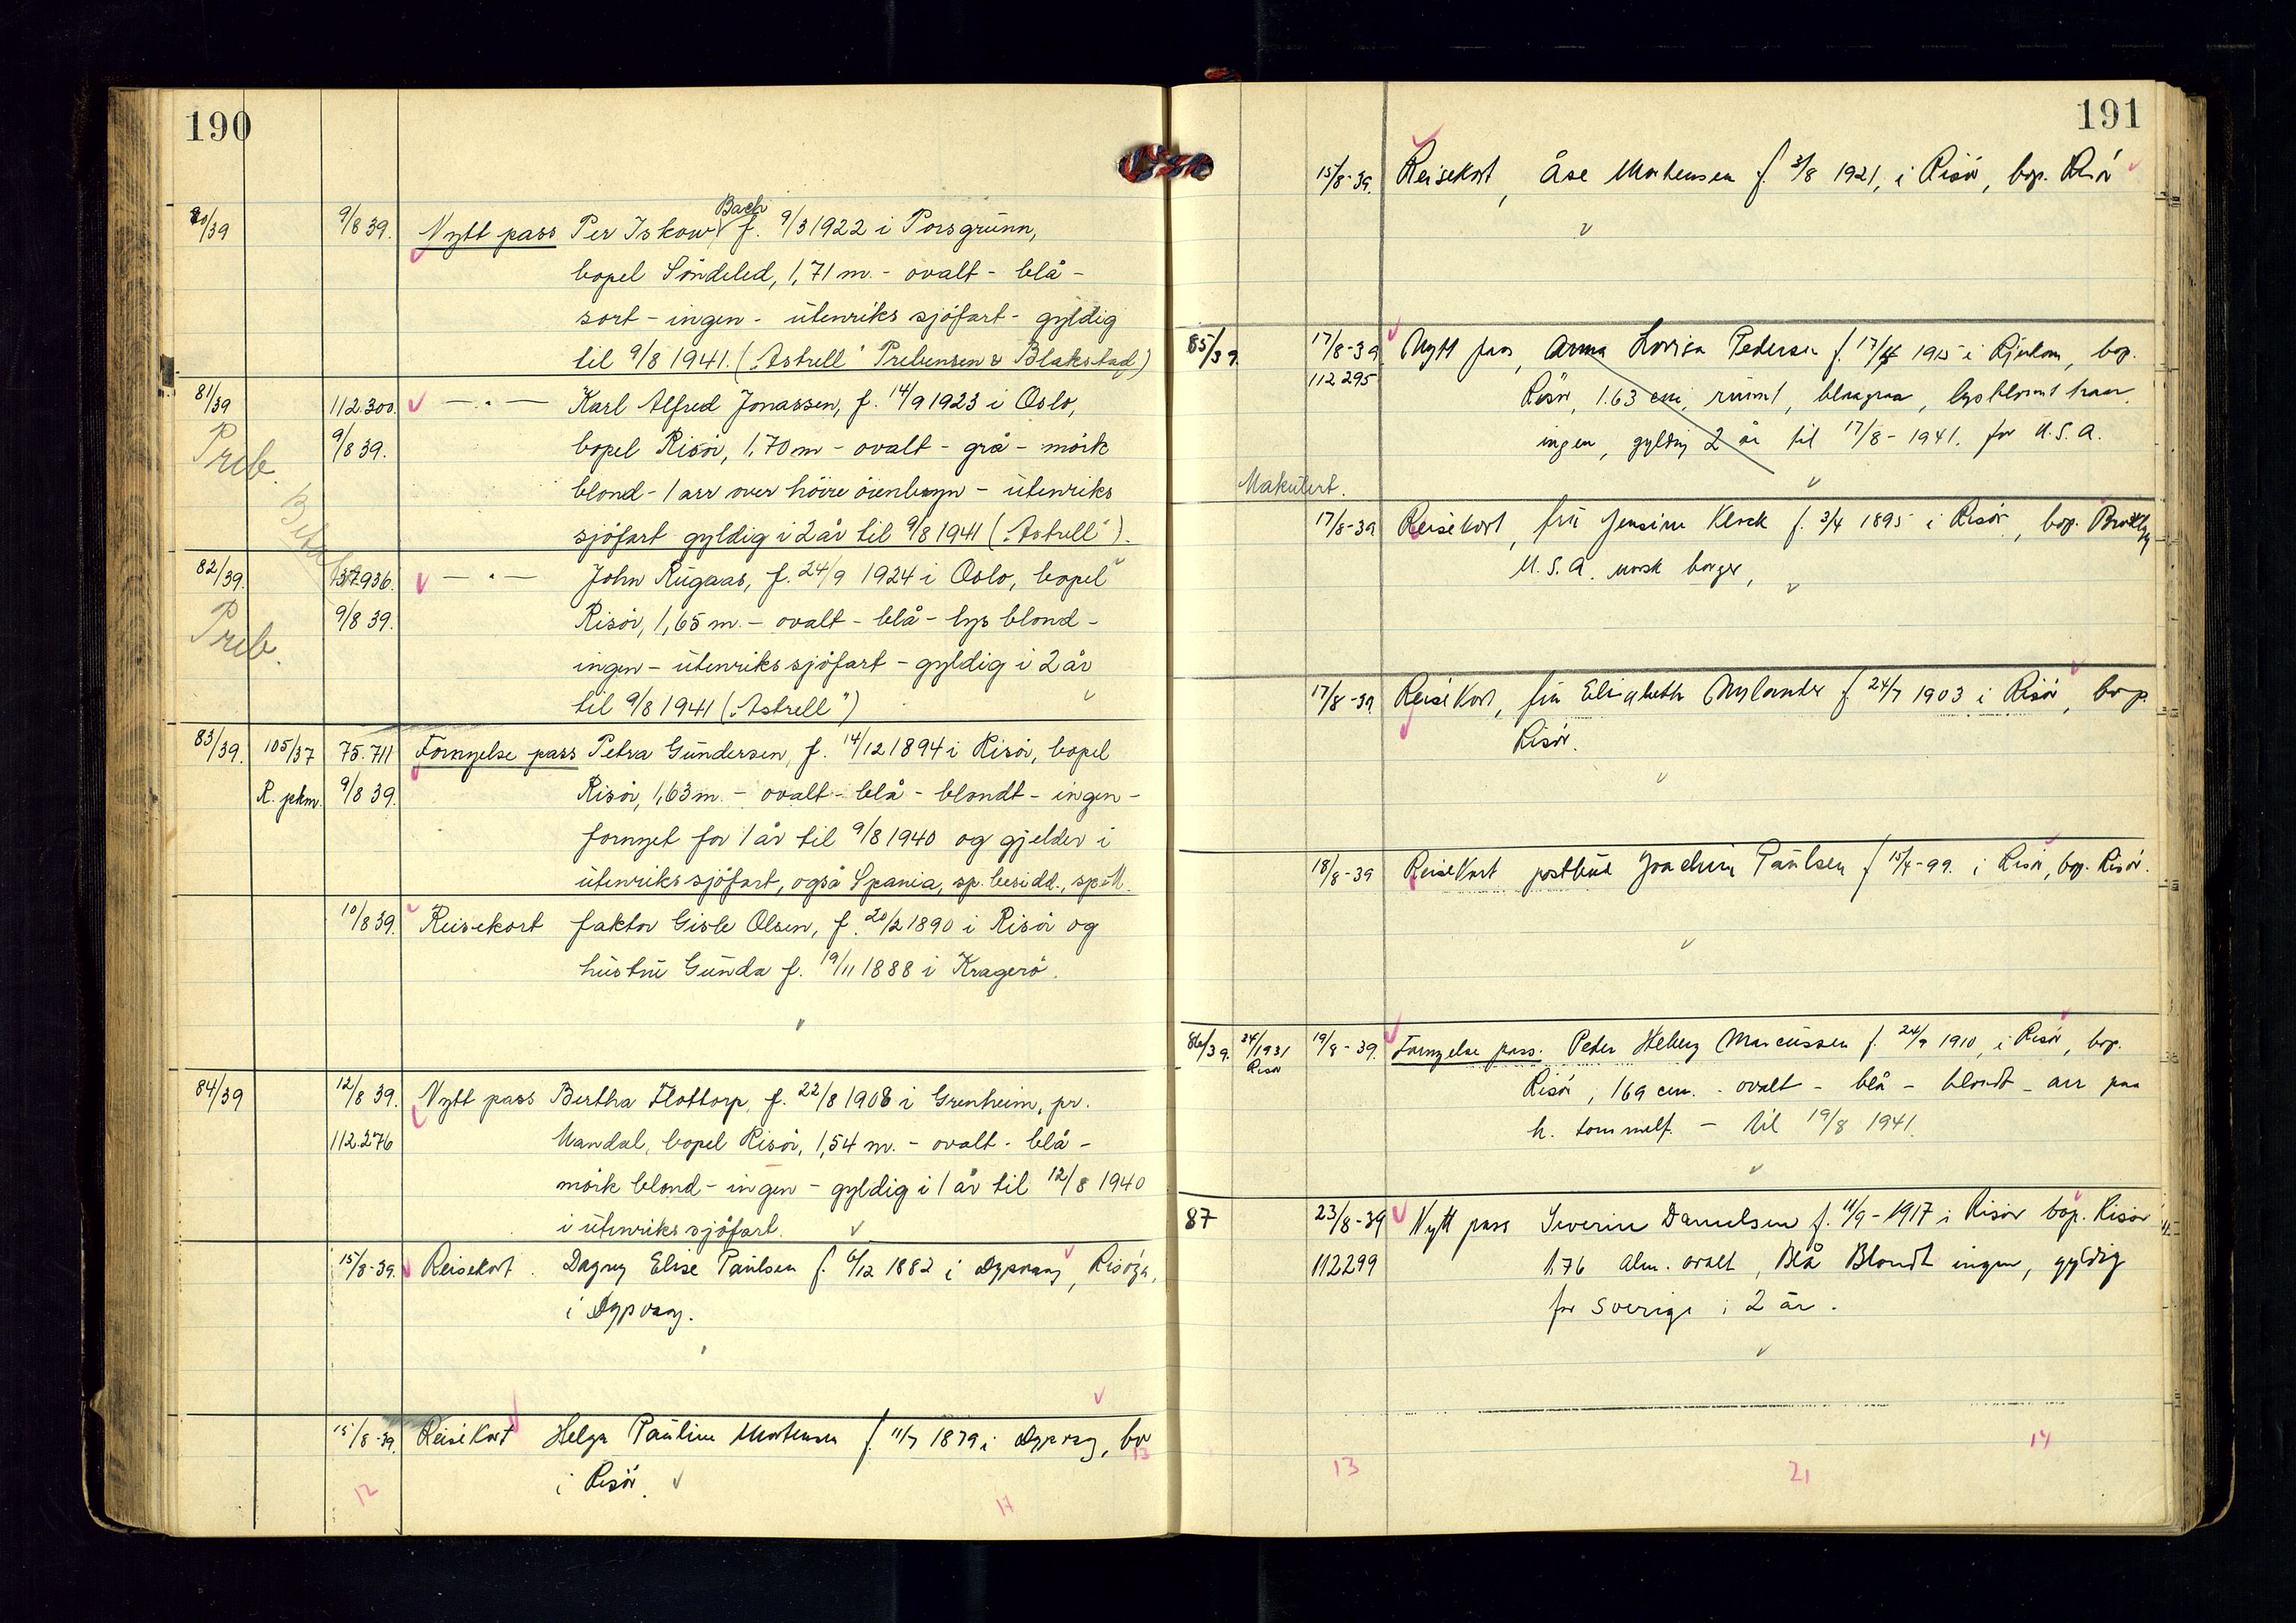 190
80/39 9/8 39. Nytt pass Per Iskow Bach f. 9/3 1922 i Porsgrunn,
bopel Söndeled, 1,71 m. - ovalt - blå -
sort - ingen - utenriks sjöfart - gyldig
til 9/8 1941. („Astrell" Prebensen & Blakstad)
81/39 112.300. — " — Karl Alfred Jonassen, f. 14/9 1923 i Oslo,
Preb. 9/8 39. bopel Risör, 1,70 m - ovalt - grå - mörk
blond - 1 arr over höire öienbryn - utenriks
sjöfart gyldig i 2 år til 9/8 1941 („Astrell").
82/39. 137936. — " — John Rugaas, f. 24/9 1924 i Oslo, bopel
Preb. 9/8 39. Risör, 1,65 m. - ovalt - blå - lys blond -
ingen - utenriks sjöfart - gyldig i 2 år
til 9/8 1941 („Astrell")
83/39. 105/37 75.711 Fornyelse pass Petra Gundersen, f. 14/12 1894 i Risör, bopel
R. pkm. 9/8 39. Risör, 1,63 m. - ovalt - blå - blondt - ingen -
fornyet for 1 år til 9/8 1940 og gjelder i
utenriks sjöfart, også Spania, sp. besidd., sp.
10/8 39. Reisekort faktor Gisle Olsen, f. 20/2 1890 i Risör og
hustru Gunda f. 19/11 1888 i Kragerö.
84/39 12/8 39. Nytt pass Bertha Flottorp, f. 22/8 1908 i Grenheim, pr.
112.276 Mandal, bopel Risör, 1,54 m. - ovalt - blå -
mörk blond - ingen - gyldig i 1 år til 12/8 1940
i utenriks sjöfart.
15/8-39. Reisekort. Dagny Elise Paulsen f. 6/12 1882 i Dypvaag, Risöya,
i Dypvaag.
15/8-39. Reisekort Helga Pauline Mortensen f. 11/7 1879 i Dypvag, bor
i Risör.
12 17 13
191
15/8-39. Reisekort, Åse Mortensen f. 3/8 1921, i Risör, bop. Risör
85/39. 17/8-39 Nytt pass, Anna Lovisa Pedersen f. 17/4 1915 i Rjukan, bop.
112295 Risör, 1.63 cm, rundt, blaagraa, lysblomt haar,
ingen, gyldig 2 år til 17/8-1941. for U.S.A.
Makulert.
17/8-39 Reisekort, fru Jensine Klock f. 3/4 1895 i Risör, bop. Brooklyn
U.S.A. norsk borger,
17/8-39 Reisekort, fru Elisabeth Nylander f 24/7 1903 i Risör, bop.
Risör.
18/8-39 Reisekort postbud Joachim Paulsen f 15/4-99. i Risör, bop. Risör.
86/39. 34/1931 19/8-39. Fornyelse pass. Peder Helberg Marcussen f. 24/9 1910, i Risör, bop.
Risör Risör, 169 cm. - ovalt - blå - blondt - arr paa
h. tommelf. - til 19/8 1941.
87 23/8-39 Nytt pass Severin Danielsen f. 11/9-1917 i Risör bop. Risör
112299 1.76 alm. ovalt, Blå Blondt ingen, gyldig
for Sverige i 2 år.
13 21 14